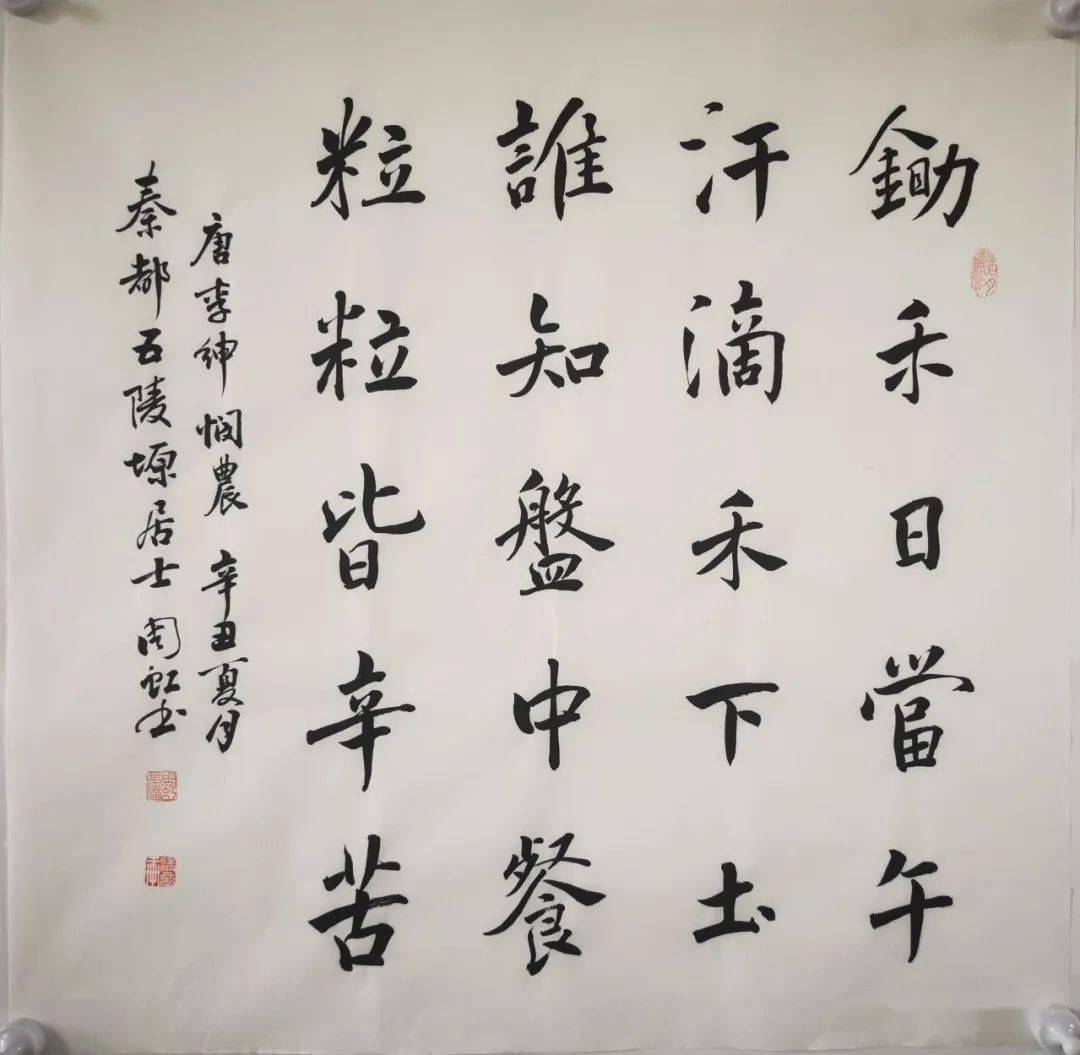 鋤禾日當午
汗滴禾下土
誰知盤中餐
粒粒皆辛苦
唐李紳憫農 辛丑夏月
秦都五陵塬居士周虹书